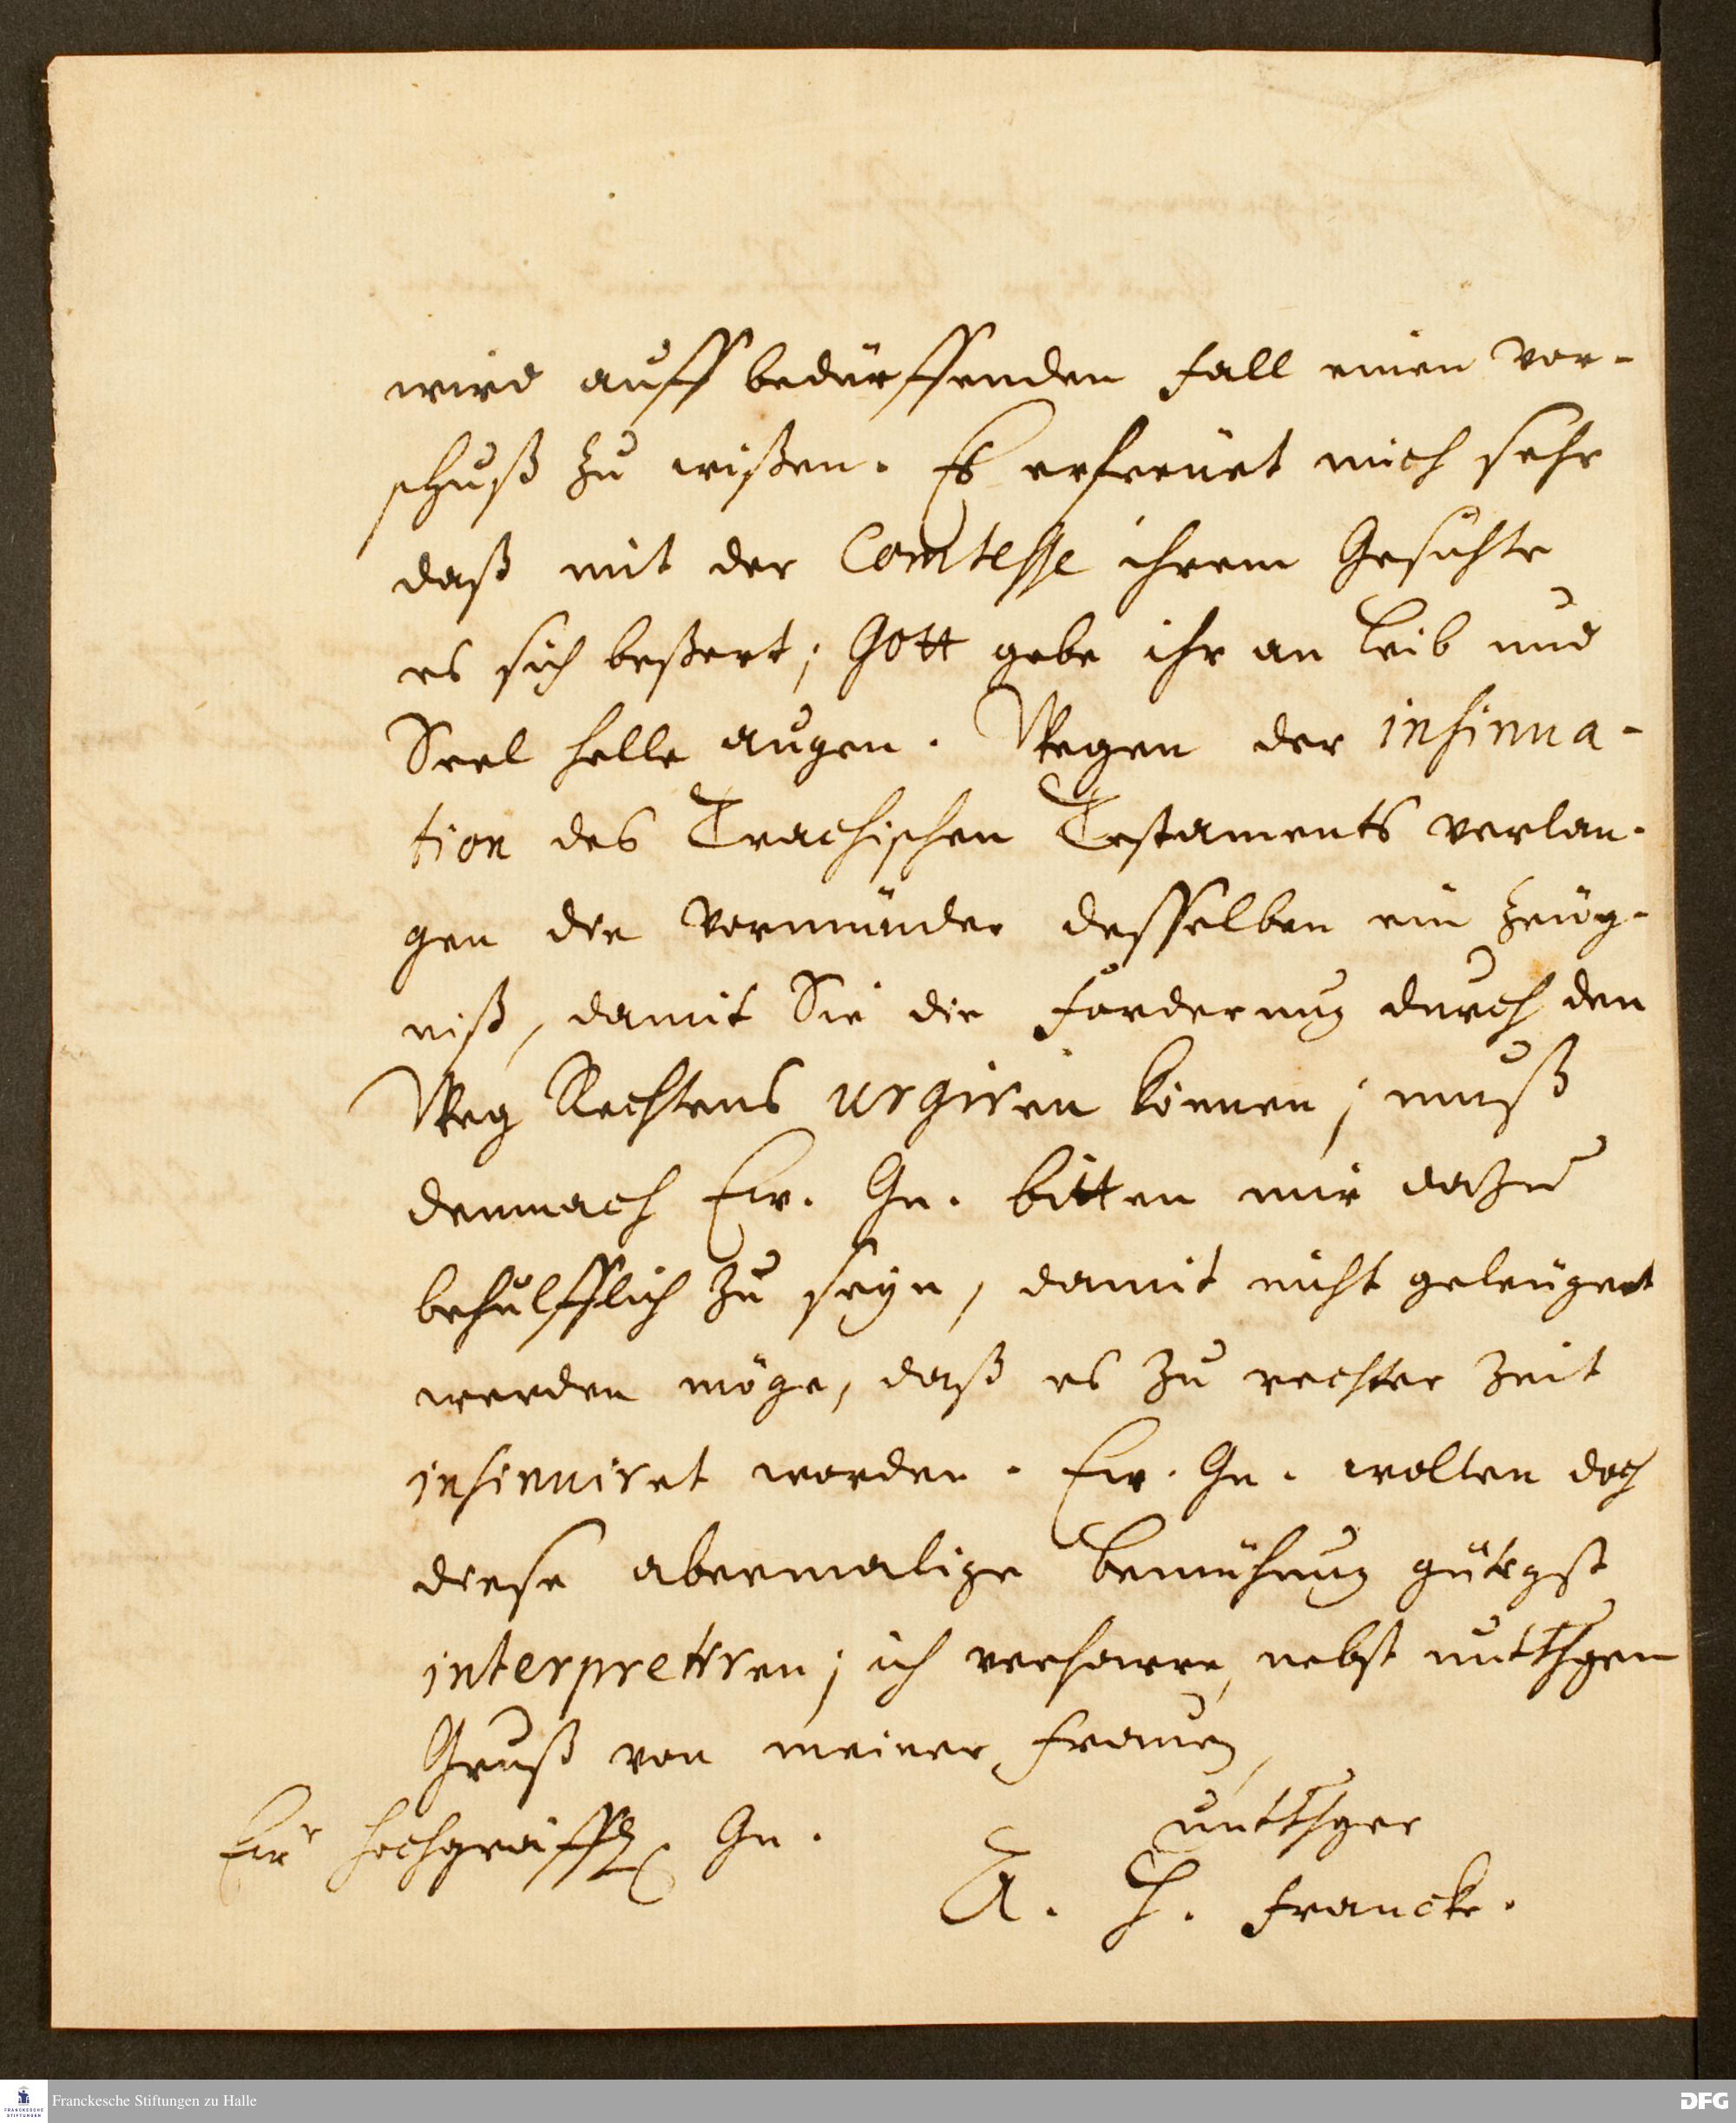 wird auff bedürffenden Fall einen Vor-
schuß zu wißen. Es erfreüet mich sehr
daß mit der Comtesse ihrem Gesichte
es sich beßert; Gott gebe ihr an Leib und
Seel helle augen. Wegen der insinua-
tion des Trachischen Testaments verlan-
gen die Vormünder desselben ein Zeüg-
niß, damit Sie die Forderung durch den
Weg Rechtens urgiren können; muß
demnach Ew. Gn. bitten mir dazu
behülfflich zu seyn, damit nicht geleügnet
werden möge, daß es zu rechter Zeit
insinuiret worden. Ew. Gn. wolten doch
diese abermalige Bemühung gütigst
interpretiren; ich verharre, nebst untthgen
Gruß von meiner Frauen,
Ewr Hochgräffl. Gn.
untthger
A. H. Francke.
Franckesche Stiftungen zu Halle
FRANCKESCHE STIFTUNGEN
DFG